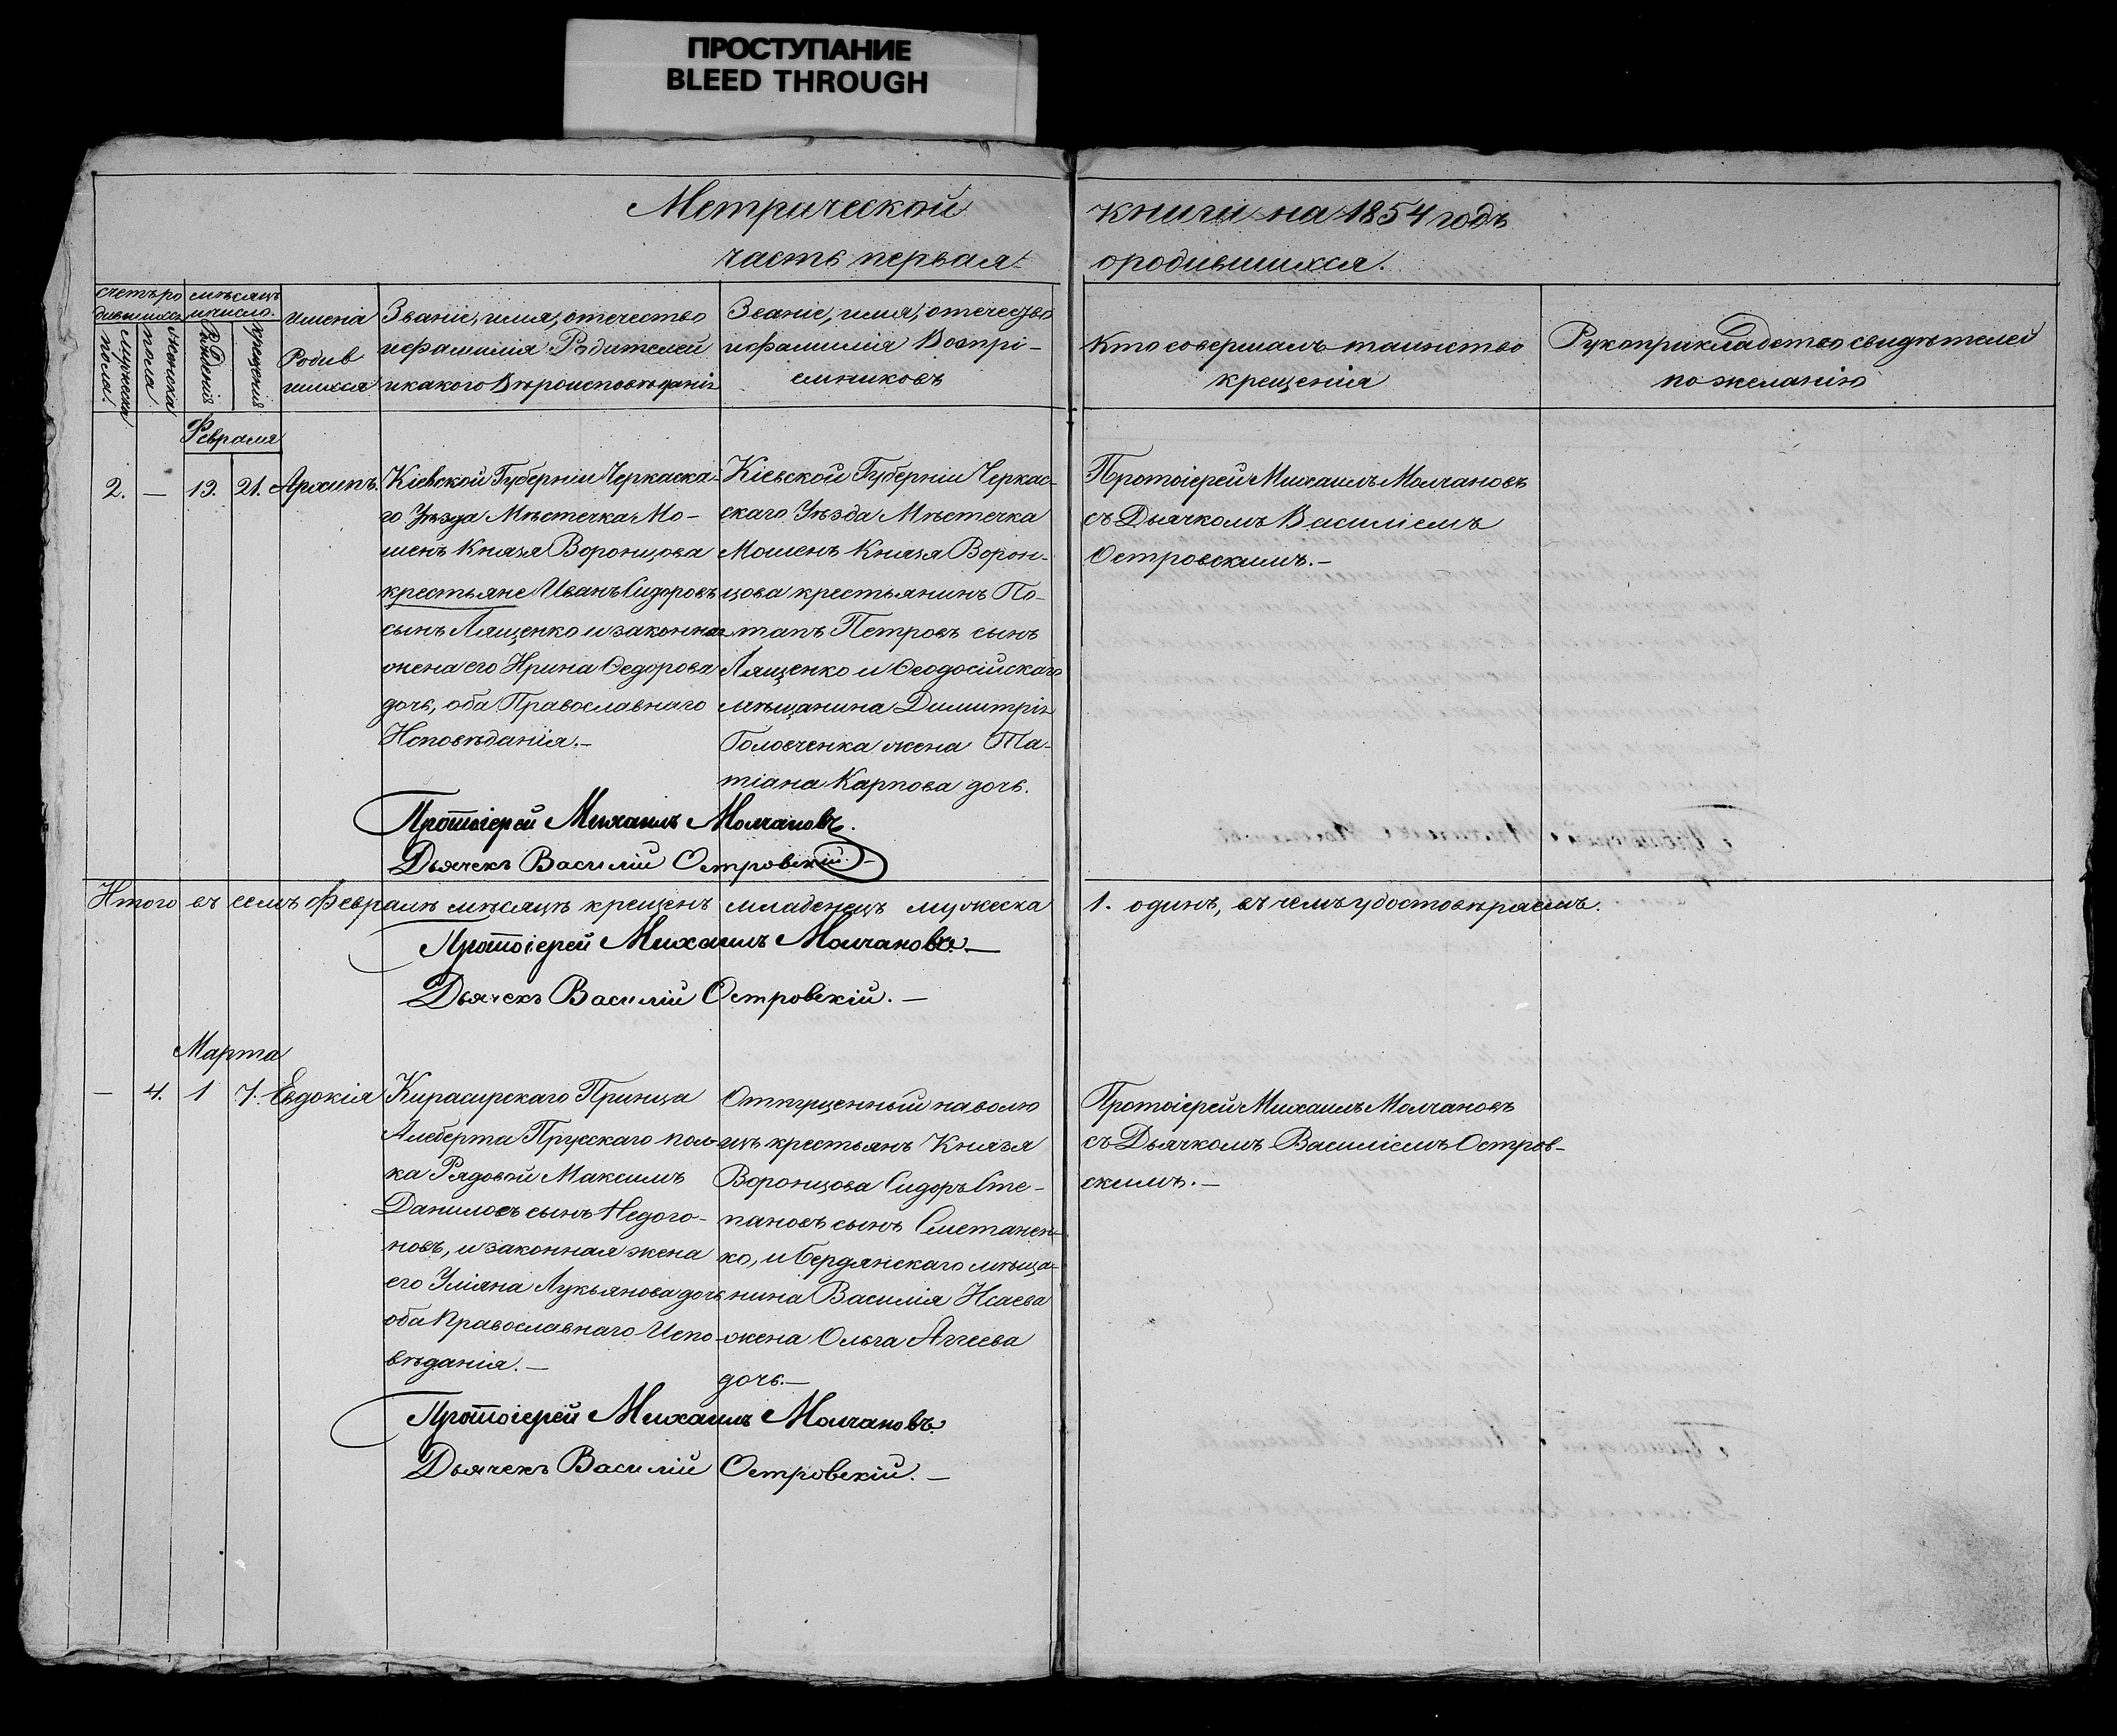 ПРОСТУПАНИЕ
BLEED THROUGH
Метрической книги на 1854 годъ
часть первая о родившихся.
счетъ родившихся
мужеска пола.
женска пола
мѣсяцъ и число.
Рожденія
крещенія
имена
Родив
шихся
Званіе, имя, отчество
и фамилія Родителей
и какого Вѣроисповѣданія
Званіе, имя, отечество
и фамилія Воспрі-
емниковъ
Кто совершалъ таинство
крещенія
Рукоприкладство свидѣтелей
по желанію
Февраля
2. — 13. 21. Архипъ.
Кіевской Губерніи Черкаска-
го Уѣзда Мѣстечка Мо-
шенъ Князя Воронцова
крестьяне Иванъ Сидоровъ
сынъ Лященко и законная
жена его Ирина Ѳедорова
дочь, оба Православнаго
Исповѣданія.—
Кіевской Губерніи Черкас-
скаго Уѣзда Мѣстечка
Мошенъ Князя Ворон-
цова крестьянинъ По-
тапъ Петровъ сынъ
Лященко и Ѳеодосійскаго
мѣщанина Димитрія
Головченка жена Та-
тіана Карпова дочь.
Протоіерей Михаилъ Молчановъ
съ Дьячкомъ Василіемъ
Островскимъ.—
Протоіерей Михаилъ Молчановъ.
Дьячекъ Василій Островскій.—
Итого въ семъ Февралѣ мѣсяцѣ крещенъ младенецъ мужеска 1. одинъ, въ чемъ удостовѣряемъ.
Протоіерей Михаилъ Молчановъ.—
Дьячекъ Василій Островскій.—
Марта
— 4. 1 7. Евдокія
Кирасирскаго Принца
Алберта Прусскаго пол-
ка Рядовой Максимъ
Даниловъ сынъ Недого-
новъ, и законная жена
его Уліяна Лукьянова дочь
оба Православнаго Испо-
вѣданія.—
Отпущенный на волю
изъ крестьянъ Князя
Воронцова Сидоръ Сте-
пановъ сынъ Сметанен-
ко, и бердянскаго мѣща-
нина Василія Исаева
жена Ольга Аггеева
дочь.—
Протоіерей Михаилъ Молчановъ
съ Дьячкомъ Василіемъ Остров-
скимъ.—
Протоіерей Михаилъ Молчановъ.
Дьячекъ Василій Островскій.—